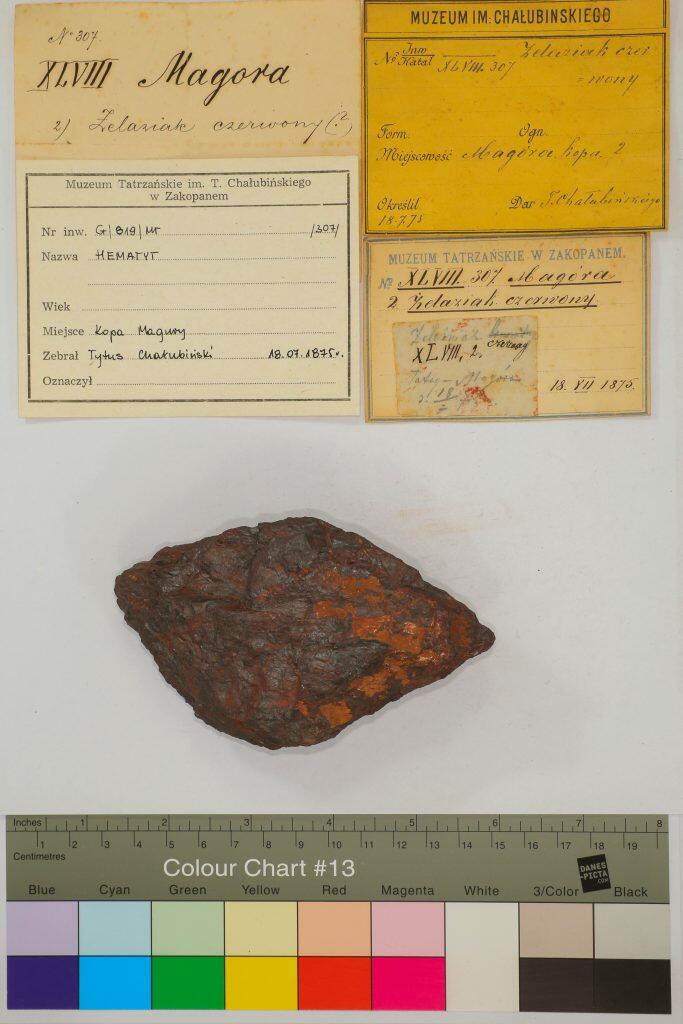 No 307.
XLVIII Magora
2) Zelaziak czerwony (?)
MUZEUM IM: CHAŁUBINSKIEGO
No Inw Katal XLVIII. 307 Zelaziak czer
= wony
Form. Ogn.
Miejscowość Magóra kopa 2
Określił Dar T. Chałubińskiego
18.7.75
Muzeum Tatrzańskie im. T. Chałubińskiego
w Zakopanem
Nr inw. G/819/MT /307/
Nazwa HEMATYT
Wiek
Miejsce Kopa Magury
Zebrał Tytus Chałubiński 18.07.1875r.
Oznaczył
MUZEUM TATRZAŃSKIE W ZAKOPANEM.
No XLVIII. 307. Magóra
2 Żelaziak czerwony.
XLVIII, 2.
18. VII 1875.
Inches 1 2 3 4 5 6 7 8
1 2 3 4 5 6 7 8 9 10 11 12 13 14 15 16 17 18 19
Centimetres
Colour Chart #13
DANES
-PICTA
.COM
Blue Cyan Green Yellow Red Magenta White 3/Color Black